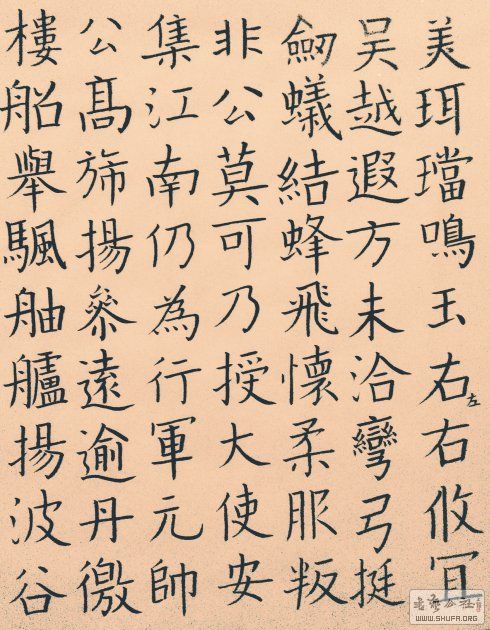 美珥璫鳴玉右左右攸冝
吳越遐方未洽彎弓挺
劒蟻結蜂飛懷柔服叛
非公莫可乃授大使安
集江南仍為行軍元帥
公髙斾揚叅遠逾丹徼
樓船舉颿舳艫揚波谷
WWW.SHUFA.ORG